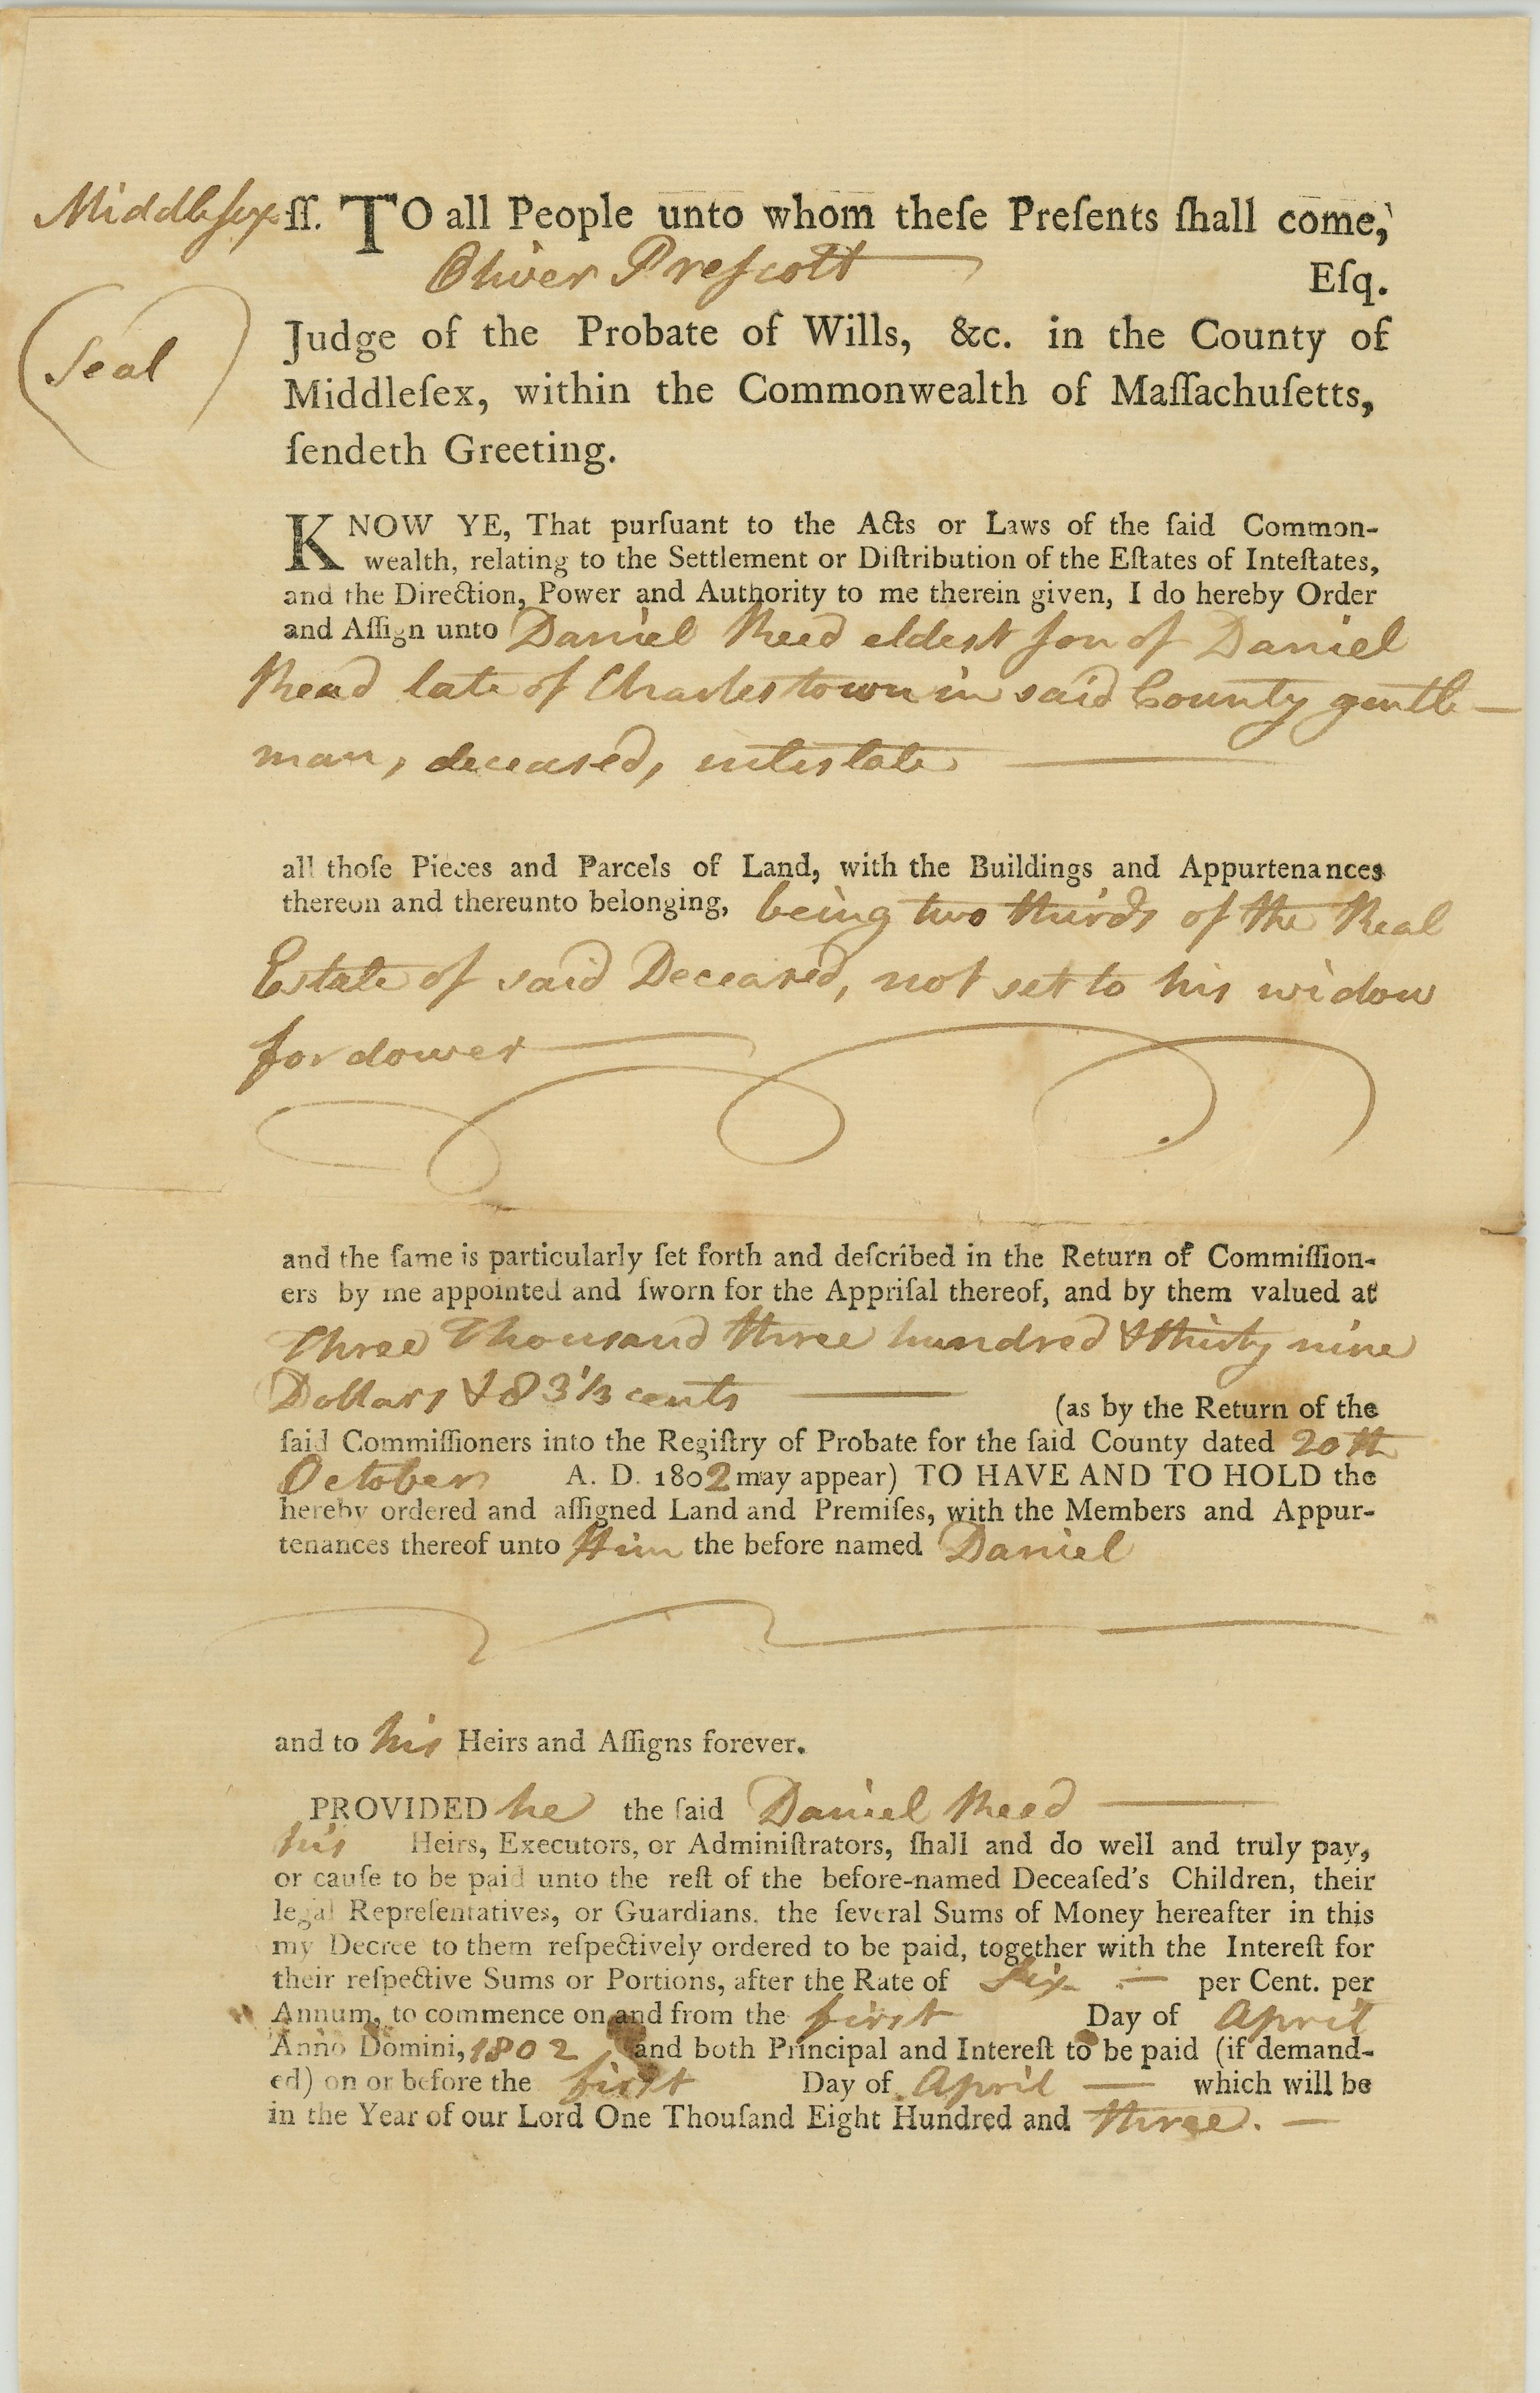 Middlesex ſſ. TO all People unto whom theſe Preſents ſhall come,
Oliver Preſcott Eſq.
(Seal)
Judge of the Probate of Wills, &c. in the County of
Middleſex, within the Commonwealth of Maſſachuſetts,
ſendeth Greeting.
KNOW YE, That purſuant to the Acts or Laws of the ſaid Common-
wealth, relating to the Settlement or Diſtribution of the Eſtates of Inteſtates,
and the Direction, Power and Authority to me therein given, I do hereby Order
and Aſſign unto Daniel Reed eldest ſon of Daniel
Read late of Charlestown in said County gentle-
man, deceased, intestate
all thoſe Pieces and Parcels of Land, with the Buildings and Appurtenances
thereon and thereunto belonging, being two thirds of the Real
Estate of said Deceased, not set to his widow
for dower
and the ſame is particularly ſet forth and deſcribed in the Return of Commiſſion-
ers by me appointed and ſworn for the Appriſal thereof, and by them valued at
Three Thousand three hundred & thirty nine
Dollars & 83 1/3 cents (as by the Return of the
ſaid Commiſſioners into the Regiſtry of Probate for the ſaid County dated 20th
October A. D. 1802 may appear) TO HAVE AND TO HOLD the
hereby ordered and aſſigned Land and Premiſes, with the Members and Appur-
tenances thereof unto Him the before named Daniel
and to his Heirs and Aſſigns forever.
PROVIDED he the ſaid Daniel Reed
his Heirs, Executors, or Adminiſtrators, ſhall and do well and truly pay,
or cauſe to be paid unto the reſt of the before-named Deceaſed's Children, their
legal Repreſentatives, or Guardians, the ſeveral Sums of Money hereafter in this
my Decree to them reſpectively ordered to be paid, together with the Intereſt for
their reſpective Sums or Portions, after the Rate of Six — per Cent. per
Annum, to commence on and from the first Day of April
Anno Domini, 1802, and both Principal and Intereſt to be paid (if demand-
ed) on or before the first Day of April — which will be
in the Year of our Lord One Thouſand Eight Hundred and three. —